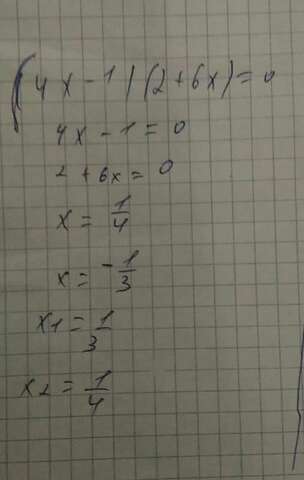 (4x-1)(2+6x)=0
4x-1=0
2+6x=0
x=1/4
x=-1/3
x1=1/3
x2=1/4